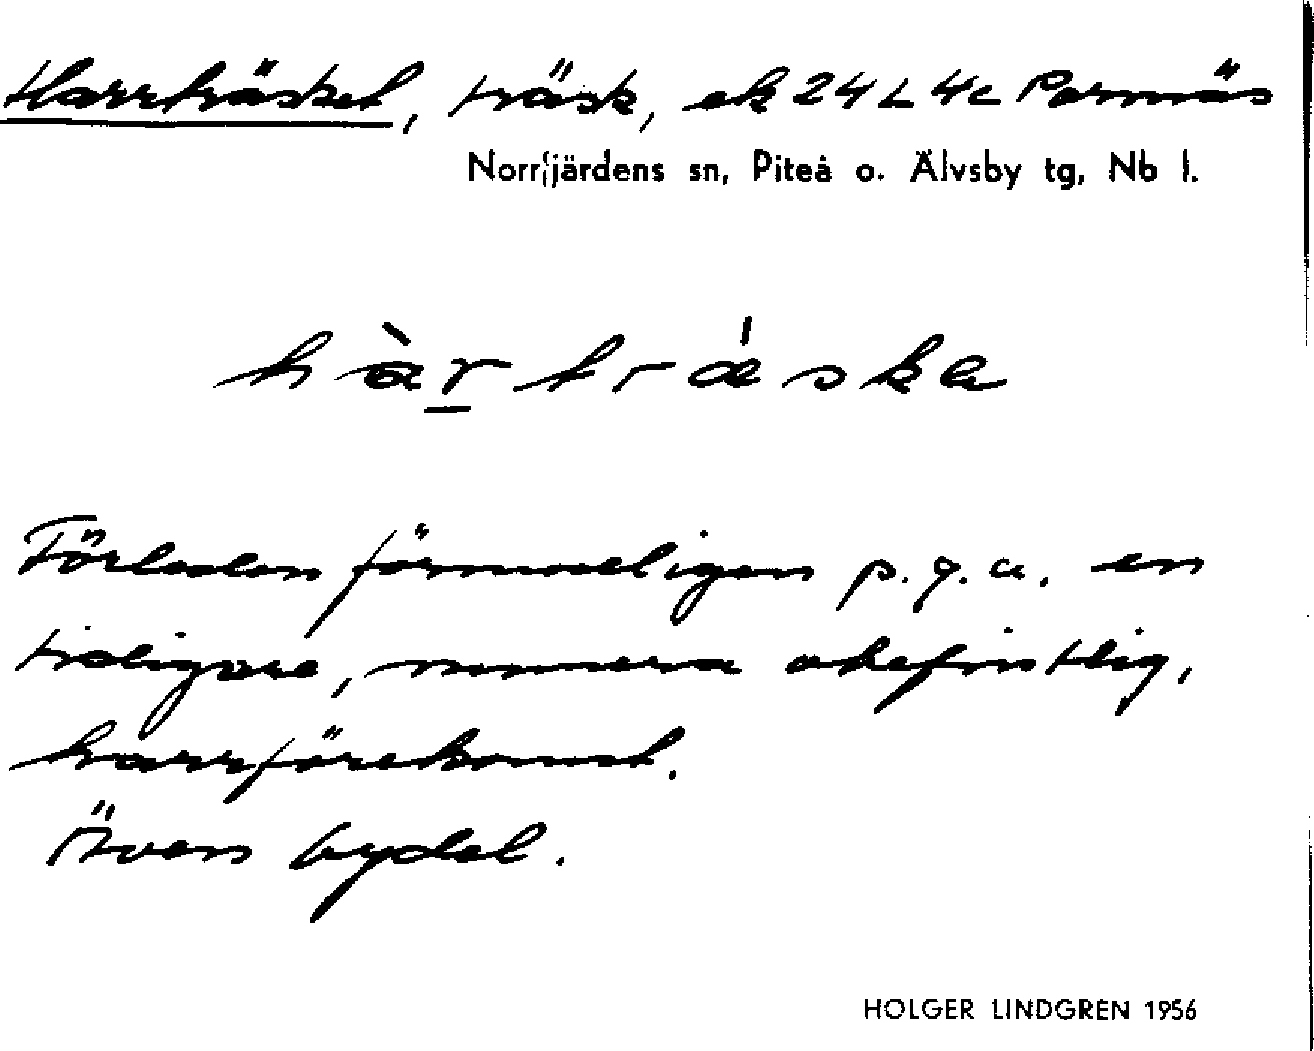 Harrträsket, träsk, ek 24 L 4c Porsnäs
Norrfjärdens sn, Piteå o. Älvsby tg, Nb l.
hàr̲tràska
Förleden förmodligen p.g.a. en
tidigare, numera obefintlig,
harrförekomst.
Även bydel.
HOLGER LINDGREN 1956